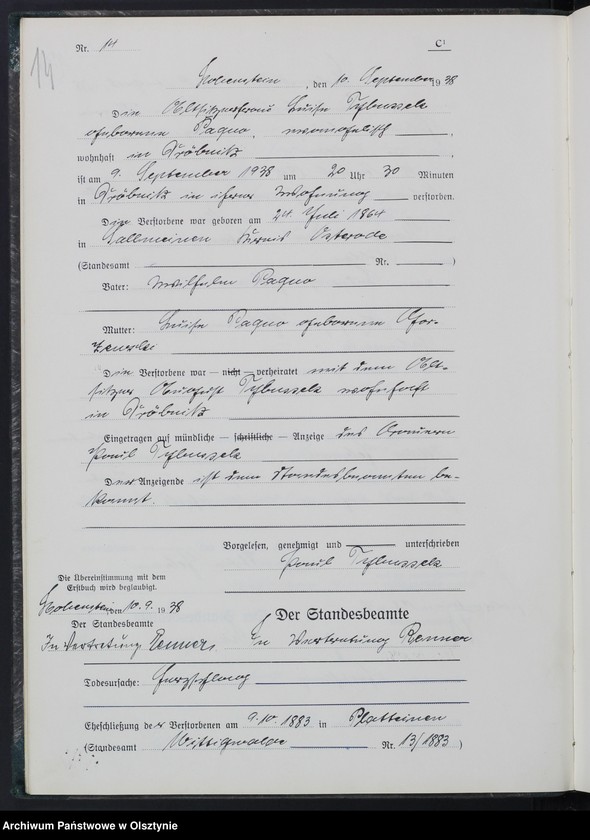 14
Nr. 14 C¹
Hohenstein, den 10. September 1938
Die Altsitzerfrau Luise
geborene Pagno, evangelisch,
wohnhaft in Dröbnitz,
ist am 9. September 1938 um 20 Uhr 30 Minuten
in Dröbnitz in ihrer Wohnung verstorben.
Die Verstorbene war geboren am 24. Juli 1864
in Sallmeinen Kreis Osterode
(Standesamt Nr. )
Vater: Wilhelm Pagno
Mutter: Luise Pagno geborene
Die Verstorbene war — nicht — verheiratet mit dem Alt-
sitzer August wohnhaft
in Dröbnitz
Eingetragen auf mündliche — schriftliche — Anzeige des
Paul
Der Anzeigende ist dem Standesbeamten be-
kannt.
Vorgelesen, genehmigt und unterschrieben
Paul
Die Übereinstimmung mit dem
Erstbuch wird beglaubigt.
Hohenstein, den 10.9.1938
Der Standesbeamte
In Vertretung Renner
Der Standesbeamte
In Vertretung Renner
Todesursache: Herzschlag
Eheschließung der Verstorbenen am 9.10.1883 in Platteinen
(Standesamt Wittigwalde Nr. 13/1883)
Archiwum Państwowe w Olsztynie